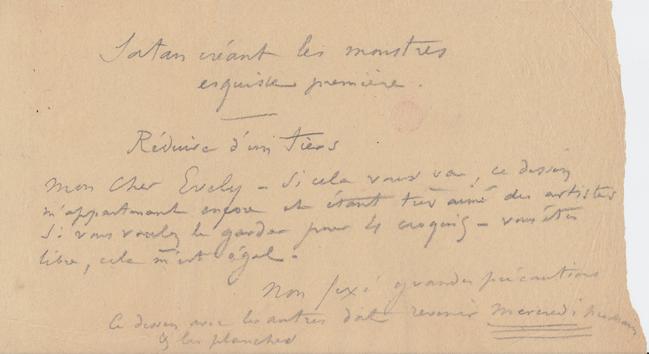 Satan créant les monstres
esquisse première.
Réduire d'un tiers
Mon cher Evely – Si cela vous va, ce dessin
m'appartenant encore et étant très aimé des artistes
Si vous voulez le garder pour 4 croquis – vous êtes
libre, cela m'est égal.
Non fixé grandes précautions
Ce dessin avec les autres doit revenir Mercredi
& les planches